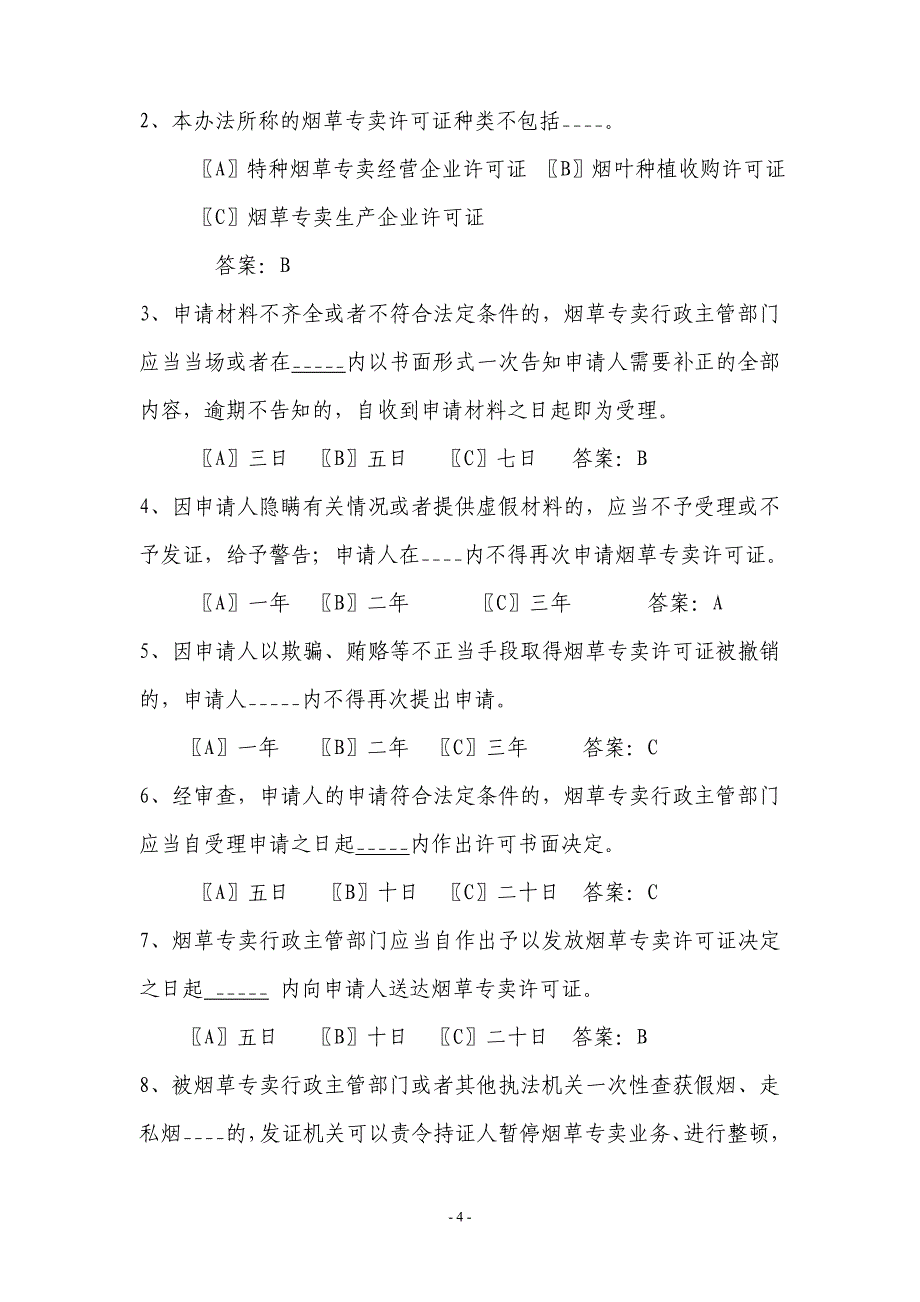 2、本办法所称的烟草专卖许可证种类不包括----。
〖A〗特种烟草专卖经营企业许可证 〖B〗烟叶种植收购许可证
〖C〗烟草专卖生产企业许可证
答案：B
3、申请材料不齐全或者不符合法定条件的，烟草专卖行政主管部门
应当当场或者在-----内以书面形式一次告知申请人需要补正的全部
内容，逾期不告知的，自收到申请材料之日起即为受理。
〖A〗三日 〖B〗五日 〖C〗七日 答案：B
4、因申请人隐瞒有关情况或者提供虚假材料的，应当不予受理或不
予发证，给予警告；申请人在----内不得再次申请烟草专卖许可证。
〖A〗一年 〖B〗二年 〖C〗三年 答案：A
5、因申请人以欺骗、贿赂等不正当手段取得烟草专卖许可证被撤销
的，申请人-----内不得再次提出申请。
〖A〗一年 〖B〗二年 〖C〗三年 答案：C
6、经审查，申请人的申请符合法定条件的，烟草专卖行政主管部门
应当自受理申请之日起-----内作出许可书面决定。
〖A〗五日 〖B〗十日 〖C〗二十日 答案：C
7、烟草专卖行政主管部门应当自作出予以发放烟草专卖许可证决定
之日起 ----- 内向申请人送达烟草专卖许可证。
〖A〗五日 〖B〗十日 〖C〗二十日 答案：B
8、被烟草专卖行政主管部门或者其他执法机关一次性查获假烟、走
私烟----的，发证机关可以责令持证人暂停烟草专卖业务、进行整顿，
- 4 -